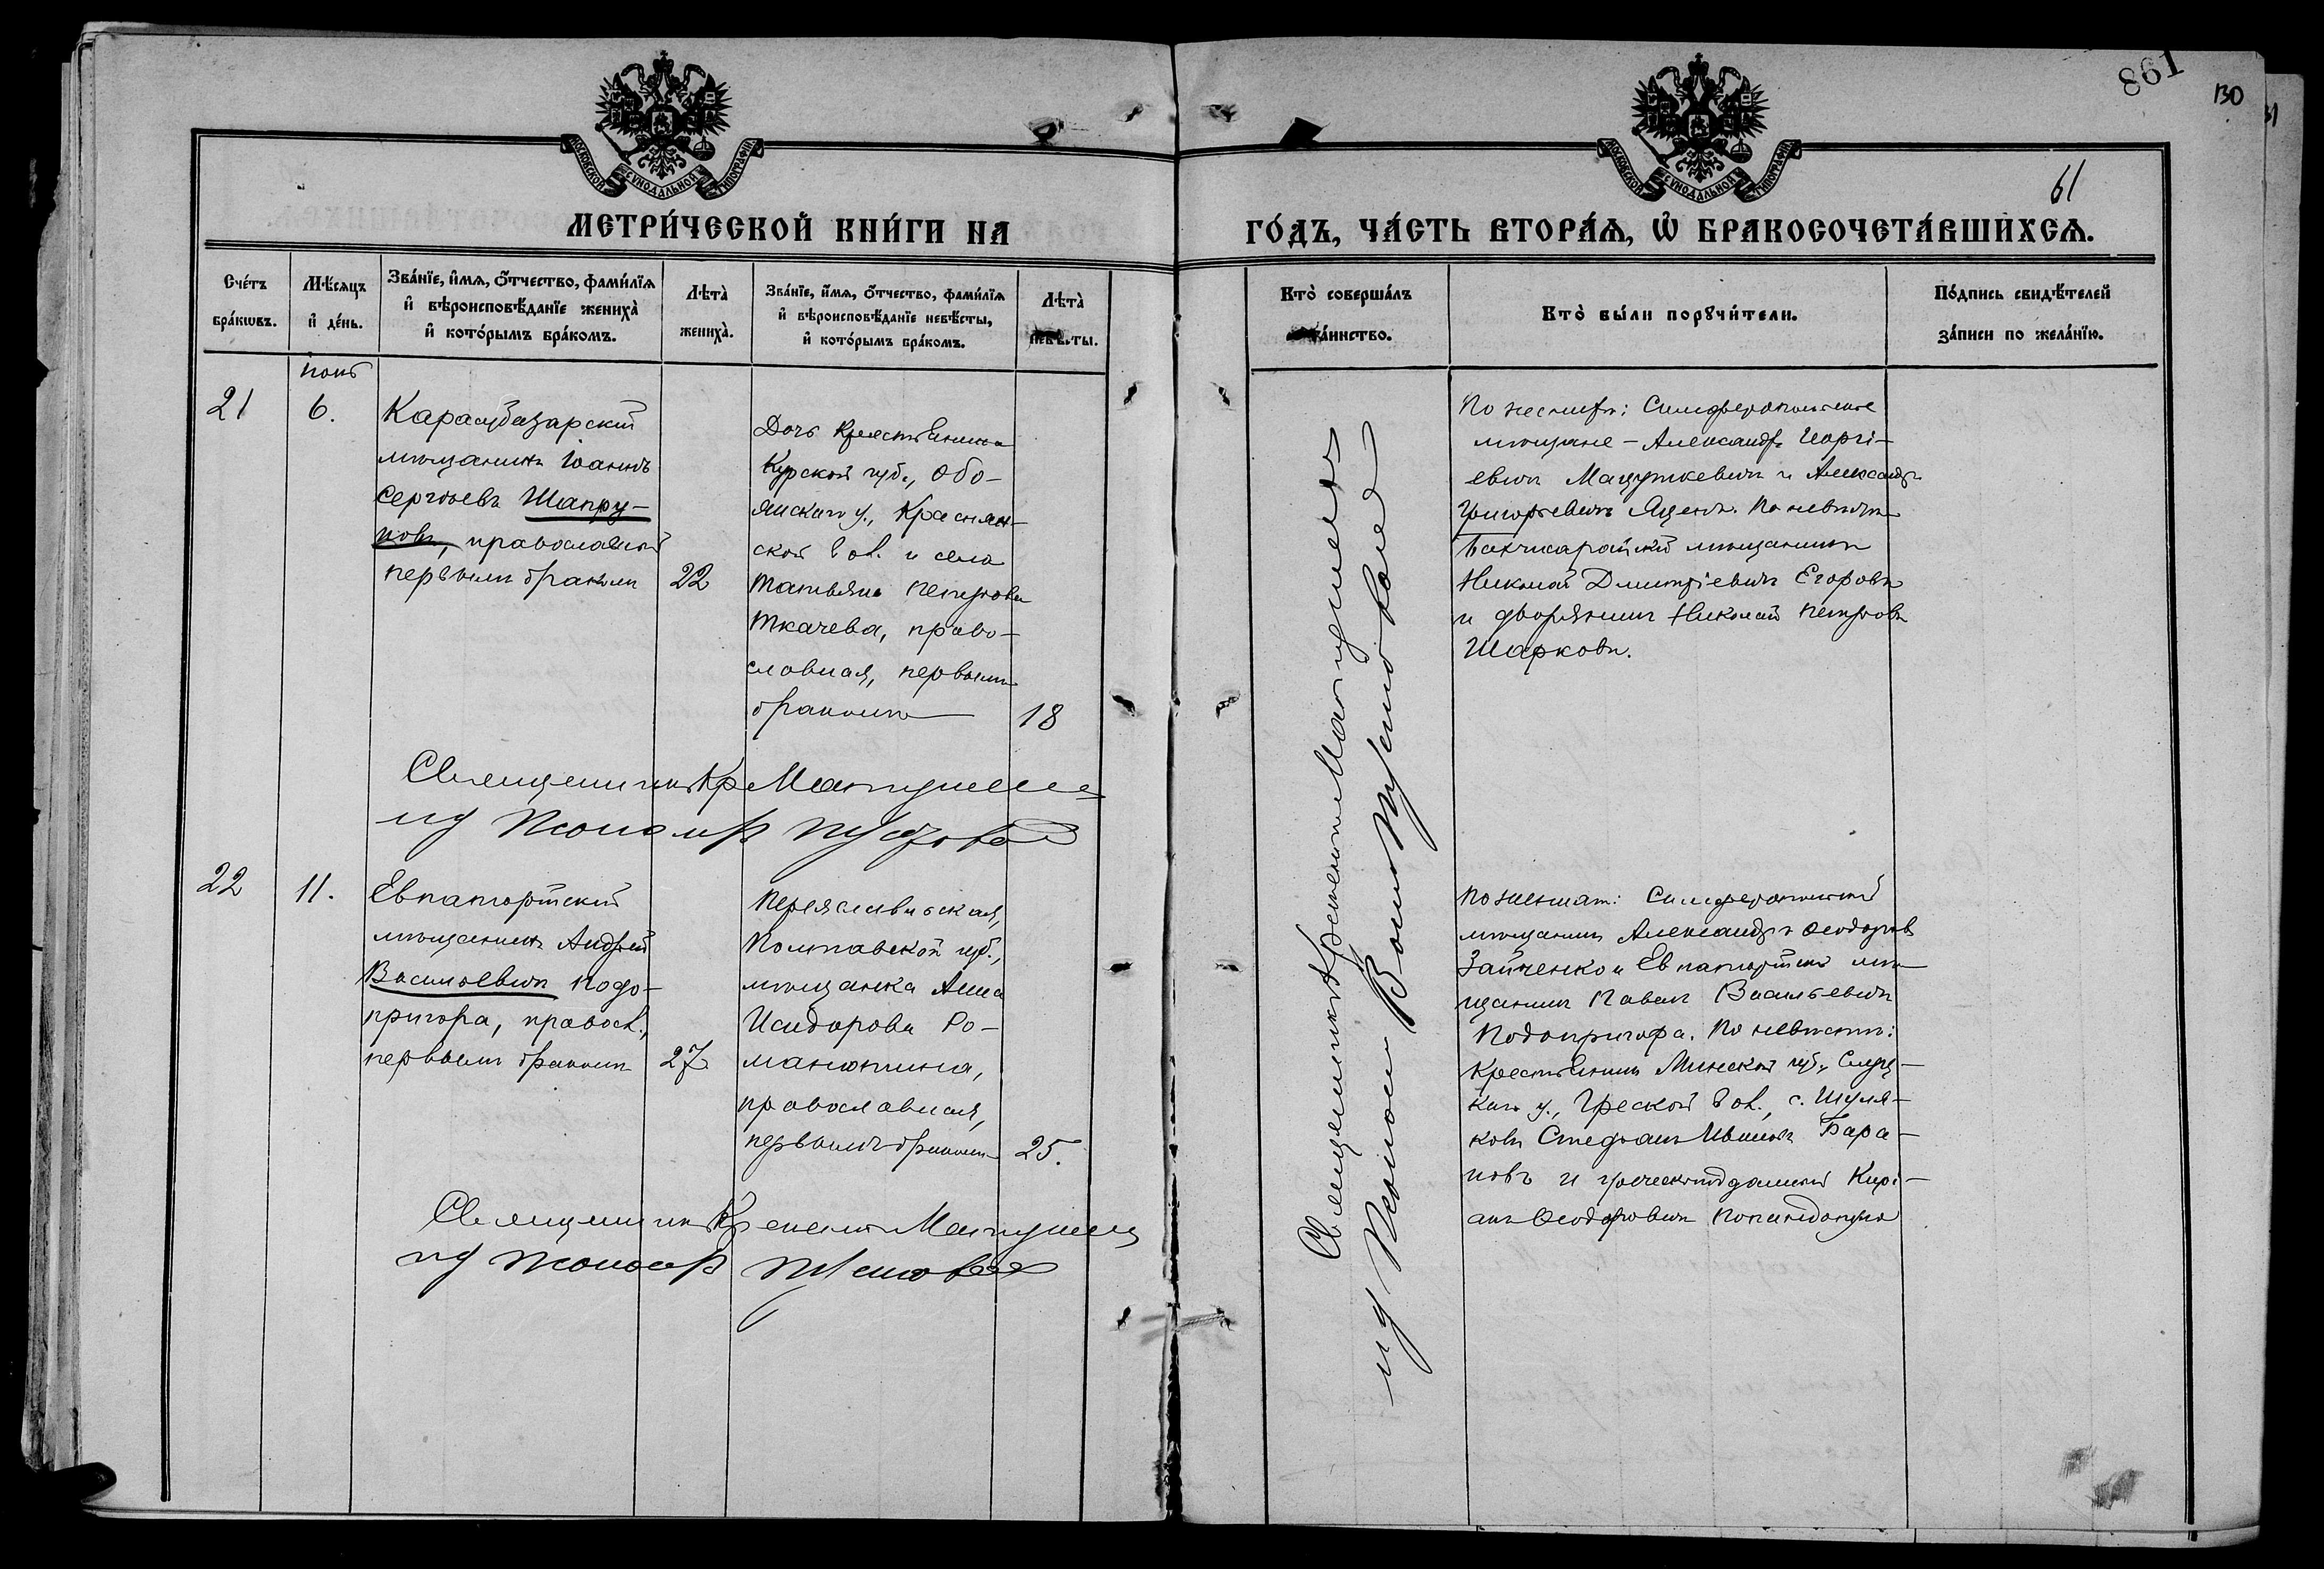 861
130
31
61
МОСКОВСКОЙ СѴНОДАЛЬНОЙ ТИПОГРАФІИ
МОСКОВСКОЙ СѴНОДАЛЬНОЙ ТИПОГРАФІИ
МЕТРИ́ЧЕСКОЙ КНИ́ГИ НА
ГО́ДЪ, ЧА́СТЬ ВТОРА́Ѧ, Ѡ҆ БРАКОСОЧЕТА́ВШИХСѦ.
Сче́тъ
бра́кѡвъ.
Мѣ́сяцъ
и҆ де́нь.
Зва́нїе, и҆́мѧ, о҆́тчество, фами́лїѧ
и҆ вѣроисповѣ́данїе жениха̀
и҆ кото́рымъ бра́комъ.
Лѣта̀
жениха̀.
Зва́нїе, и҆́мѧ, о҆́тчество, фами́лїѧ
и҆ вѣроисповѣ́данїе невѣ́сты,
и҆ кото́рымъ бра́комъ.
Лѣта̀
невѣ́сты.
Кто̀ соверша́лъ
таинство.
Кто̀ бы́ли порꙋчи́тели.
По́дпись свидѣ́телей
за́писи по жела́нїю.
21
6.
Карасубазарскій
мѣщанинъ Іоаннъ
Сергѣевъ Шапру-
новъ, православный
первымъ бракомъ
22
Дочь крестьянина
Курской губ., Обо-
янскаго у., Краснян-
ской вол. и села
Татьяна Петрова
Ткачева, право-
славная, первымъ
бракомъ
18
По женихѣ: Симферопольскіе
мѣщане - Александръ Георгі-
евичъ Мацуткевичъ и Александръ
Григорьевичъ Яценко. По невѣстѣ
Бахчисарайскій мѣщанинъ
Николай Дмитріевичъ Егоровъ
и дворянинъ Николай Петровъ
Шарковъ.
Священникъ Кр Матушевъ
ид
22
11.
Евпаторійскій
мѣщанинъ Андрей
Васильевичъ Подо-
пригора, правосл.,
первымъ бракомъ
27
Переяславльская,
Полтавской губ.,
мѣщанка Анна
Исидорова Ро-
манюпина,
православная,
первымъ бракомъ
25.
По женихѣ: Симферопольскій
мѣщанинъ Александръ Ѳеодоровъ
Зайченко и Евпаторійскій мѣ-
щанинъ Павелъ Васильевичъ
Подопригора. По невѣстѣ:
Крестьянинъ Минской губ., Слуц-
каго у., Греской вол., с. Шуля-
ковъ Стефанъ Ивановъ Бара-
новъ и греческоподданный Кирі-
акъ Ѳеодоровичъ
Священникъ Матушевъ
ид
Священникъ Матушевъ
ид